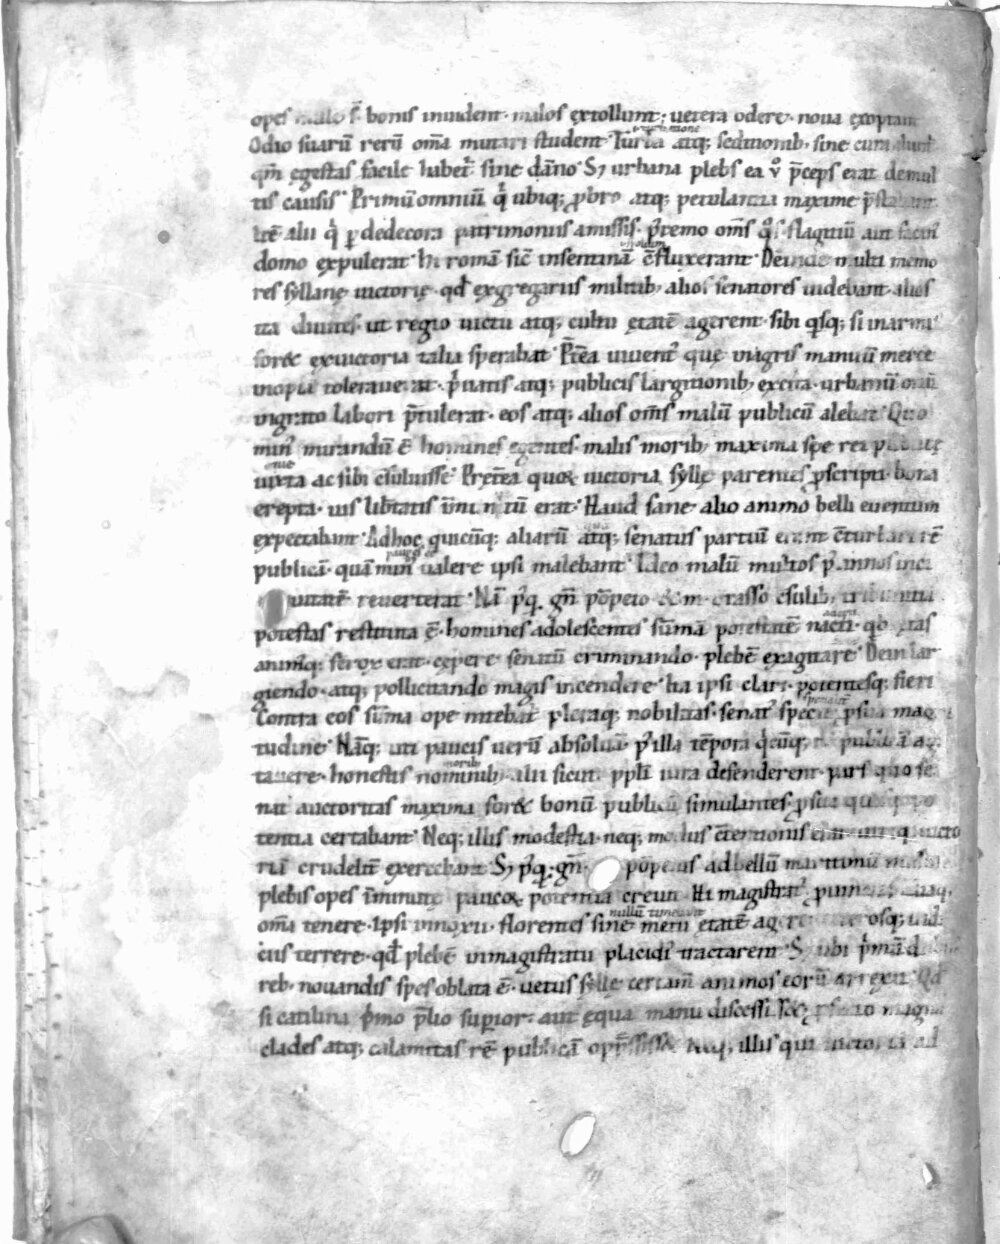 opes malis s̄ bonis inuident· malos extollunt; uetera odere· noua exoptant
Odio suarū rerū om̄a mutari student· Turba atq; seditionib; sine cura alunt̄
qm̄ egestas facile habet̄ sine dāno· S; urbana plebs ea v̊ p̄ceps erat demul
tis causis· Primū omniū q̇ ubiq; ꝓbro atq; petulantia maxime p̄stabant
Itē alii q̇ ꝑ dedecora patrimoniis amissis· p̄tremo om̄s q̊s flagitiū aut facin̄
domo expulerat· hi romā sic̄ insentinā c̄fluxerant· Deinde multi memo
res syllane uictorie· qd̄ exgregariis militib; alios senatores uidebant· alios
ita diuites· ut regio uictu atq; cultu ętatē agerent· sibi qsq; si inarmis
foret exuictoria talia sperabat· P̄tea iuuent̄ que inagris manuū merce
inopiā tolerauerat· p̄uatis atq; publicis largitionib; excita· urbanū otiū
ingrato labori p̄tulerat· eos atq; alios om̄s malū publicū alebat· Quo
min᷒ mirandū ē homines egentes· malis morib; maxima spe rei publicę
iuxta ac sibi c̄suluisse· Pretea quoꝝ uictoria sylle parentes ꝓscripti· bona
erepta· ius lib̄tatis īminutū erat· Haud sane alio animo belli euentum
expectabant· Adhoc quicūq; aliarū atq; senatus partiū erant c̄turbari rē
publicā· quā min᷒ ualere ipsi malebant· Ideo malū multos p᷒ annos inci
uitatē reuerterat· Nā p᷒q̄ gn̄ pōpeio & m· crasso c̄sulib; tribunitia
potestas restituta ē· homines adolescentes sūmā potestatē nacti· q̇b᷒ ętas
animūsq; ferox erat· cepere senatū criminando· plebē exagitare· Dein lar
giendo· atq; pollicitando magis incendere· Ita ipsi clari· potentesq; fieri
Contra eos sūma ope nitebat̄ pleraq; nobilitas· senat᷒ specie· ꝓsua mag
tudine· Nāq; uti paucis uerū absoluā· p᷒ illa tēpora q̇cūq; rē publicā ag
tauere· honestis nominib; alii sicuti ppl̄i iura defenderent· pars quo se
nat᷒ auctoritas maxima foret bonū publicū simulantes· ꝓsua quisq; po
tentia certabant· Neq; illis modestia· neq; modus c̄tentionis erat· utriq; uicto
riā crudelit̄ exercebant· S; p᷒q̄ gn̄· pōpeius adbellū maritimū
plebis opes īminute· paucoꝝ potentia creuit· Hi magistrat᷒ ꝓuincias aliaq;
om̄a tenere· Ipsi innoxii· florentes sine metu ętatē agere
ciis terrere· qd̄ plebē inmagistratu placidi᷒ tractarent· S; ubi p̄mū
reb; nouandis spes oblata ē· uetus sylle certam̄ animos eorū arrexit· Qd
si catilina p̄mo p̄lio superior· aut equa manu discessiss& ꝓfecto magna
clades atq; calamitas rē publicā opp̄ssiss& Neq; illis qui uictoria ad